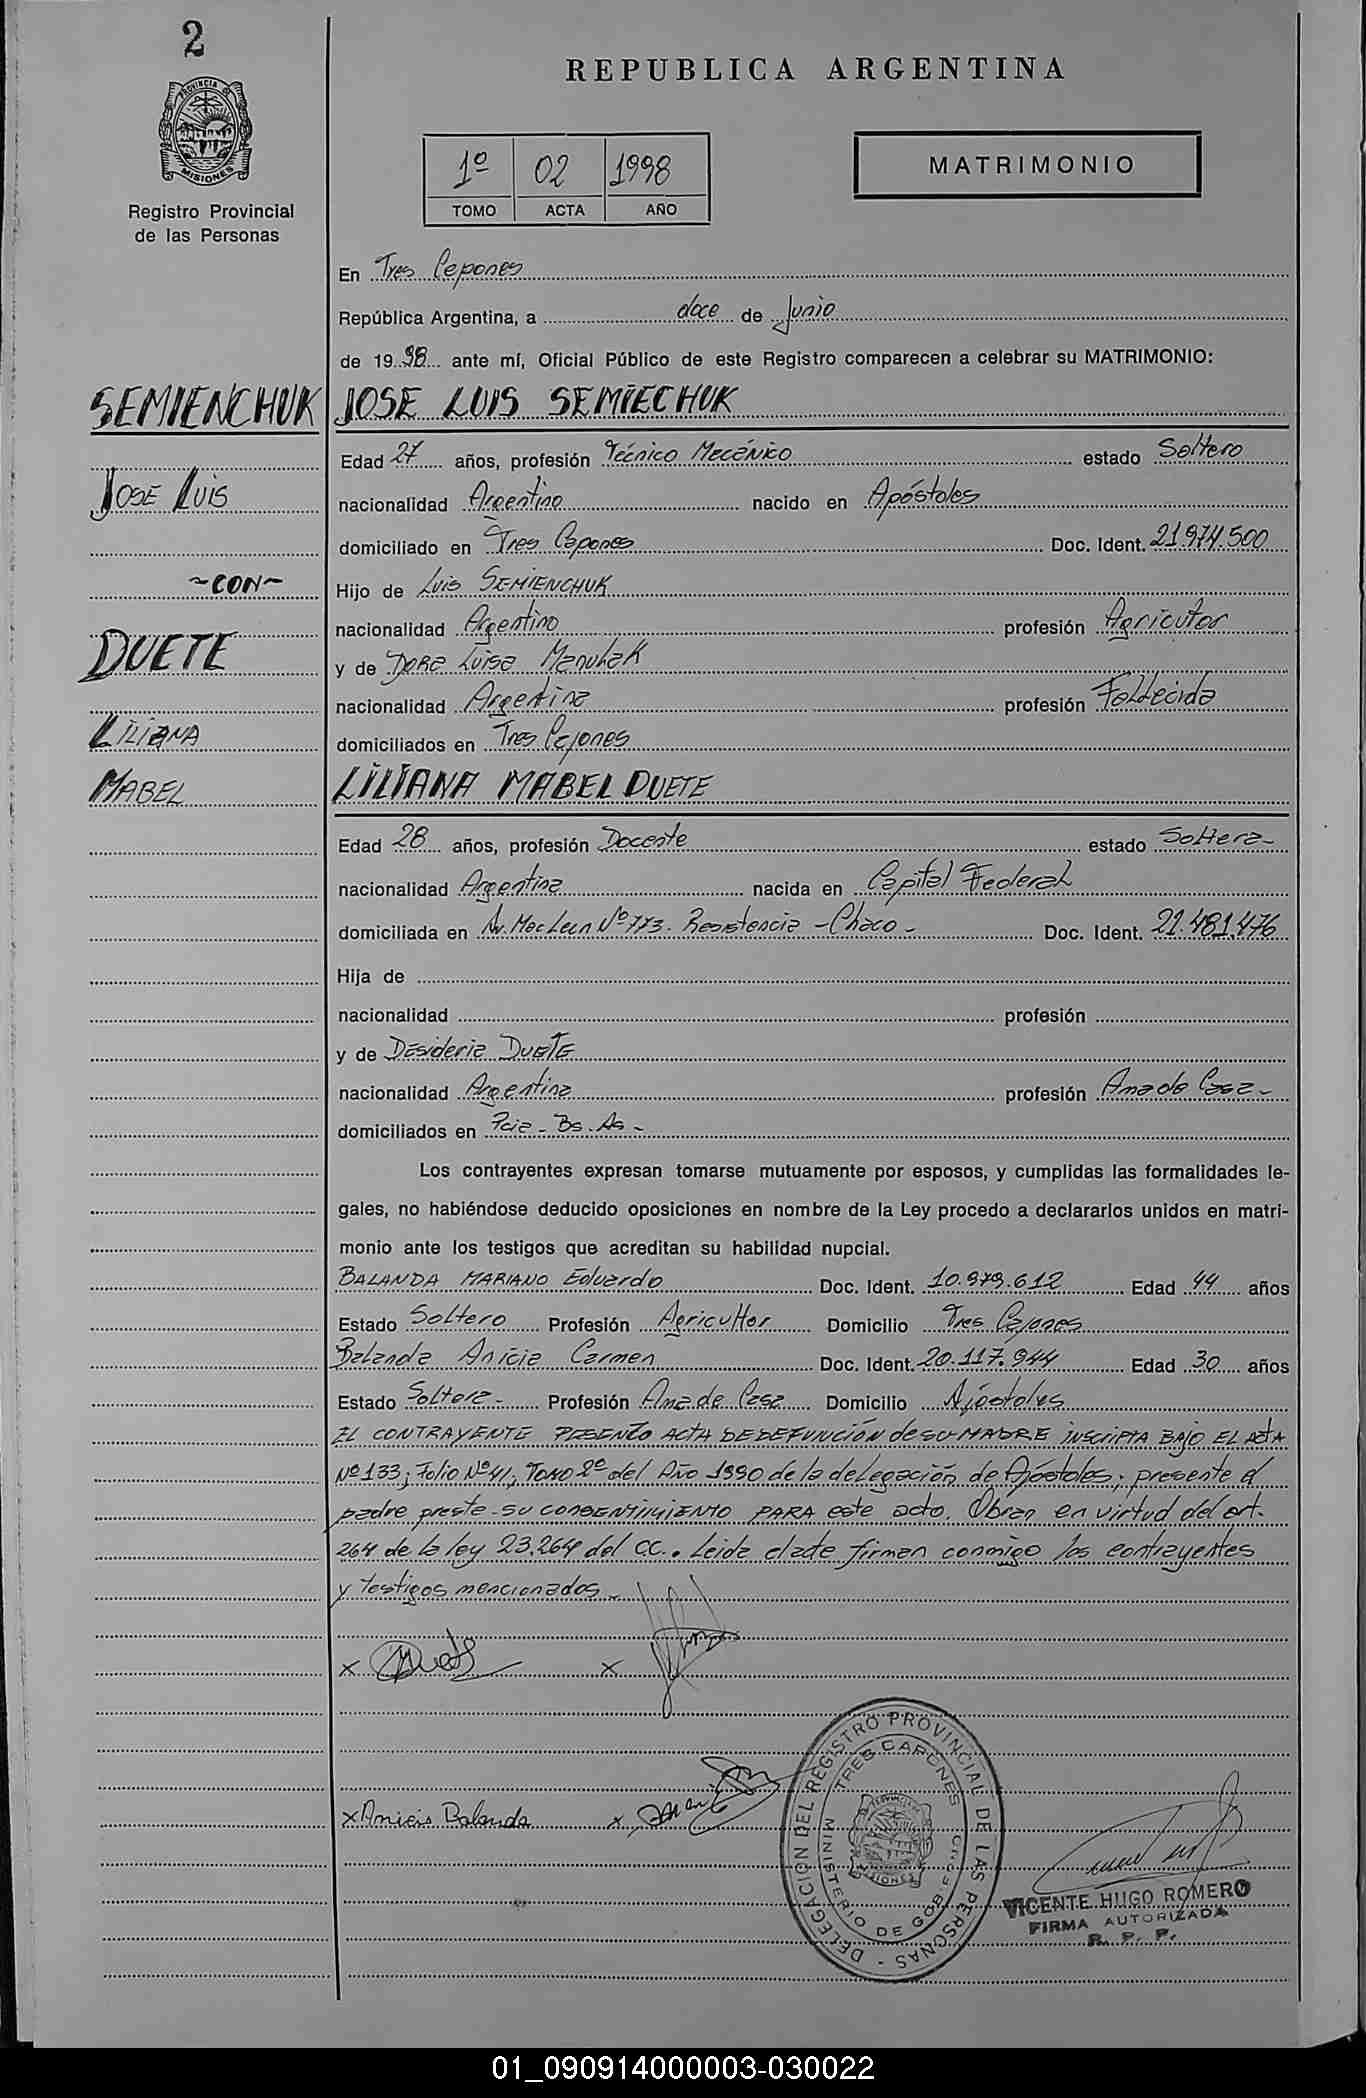 2
PROVINCIA DE
MISIONES
Registro Provincial
de las Personas
REPUBLICA ARGENTINA
1º 02 1998
TOMO ACTA AÑO
MATRIMONIO
En Tres Capones
República Argentina, a doce de Junio
de 19 98 ante mí, Oficial Público de este Registro comparecen a celebrar su MATRIMONIO:
SEMIENCHUK
JOSE LUIS
~CON~
DUETE
LILIANA
MABEL
JOSE LUIS SEMIECHUK
Edad 27 años, profesión Técnico Mecánico estado Soltero
nacionalidad Argentino nacido en Apóstoles
domiciliado en Tres Capones Doc. Ident. 21.974.500
Hijo de Luis SEMIENCHUK
nacionalidad Argentino profesión Agricutor
y de Dora Luisa Manulak
nacionalidad Argentina profesión Fallecida
domiciliados en Tres Capones
LILIANA MABEL DUETE
Edad 28 años, profesión Docente estado Soltera-
nacionalidad Argentina nacida en Capital Federal
domiciliada en Av. Mac Lean Nº 773. Resistencia - Chaco - Doc. Ident. 21.481.476
Hija de
nacionalidad profesión
y de Desideria DUETE
nacionalidad Argentina profesión Ama de Casa-
domiciliados en Pcia - Bs. As -
Los contrayentes expresan tomarse mutuamente por esposos, y cumplidas las formalidades le-
gales, no habiéndose deducido oposiciones en nombre de la Ley procedo a declararlos unidos en matri-
monio ante los testigos que acreditan su habilidad nupcial.
BALANDA MARIANO Eduardo Doc. Ident. 10.979.612 Edad 44 años
Estado Soltero Profesión Agricultor Domicilio Tres Capones
Balanda Anicia Carmen Doc. Ident. 20.117.944 Edad 30 años
Estado Soltera- Profesión Ama de Casa Domicilio Apóstoles
EL CONTRAYENTE PRESENTO ACTA DE DEFUNCIÓN de SU MADRE INSCRIPTA BAJO EL ACTA
Nº 133; Folio Nº 41; TOMO 2º del Año 1990 de la delegación de Apóstoles; presente el
padre presta su CONSENTIMIENTO PARA este acto. Obran en virtud del art.
264 de la ley 23.264 del CC. Leida el acta firman conmigo los contrayentes
y testigos mencionados -
x Duete x
x Anicia Balanda x
DELEGACION DEL REGISTRO PROVINCIAL DE LAS PERSONAS -
TRES CAPONES
MINISTERIO DE GOB
VICENTE HUGO ROMERO
FIRMA AUTORIZADA
R. P. P.
01_090914000003-030022